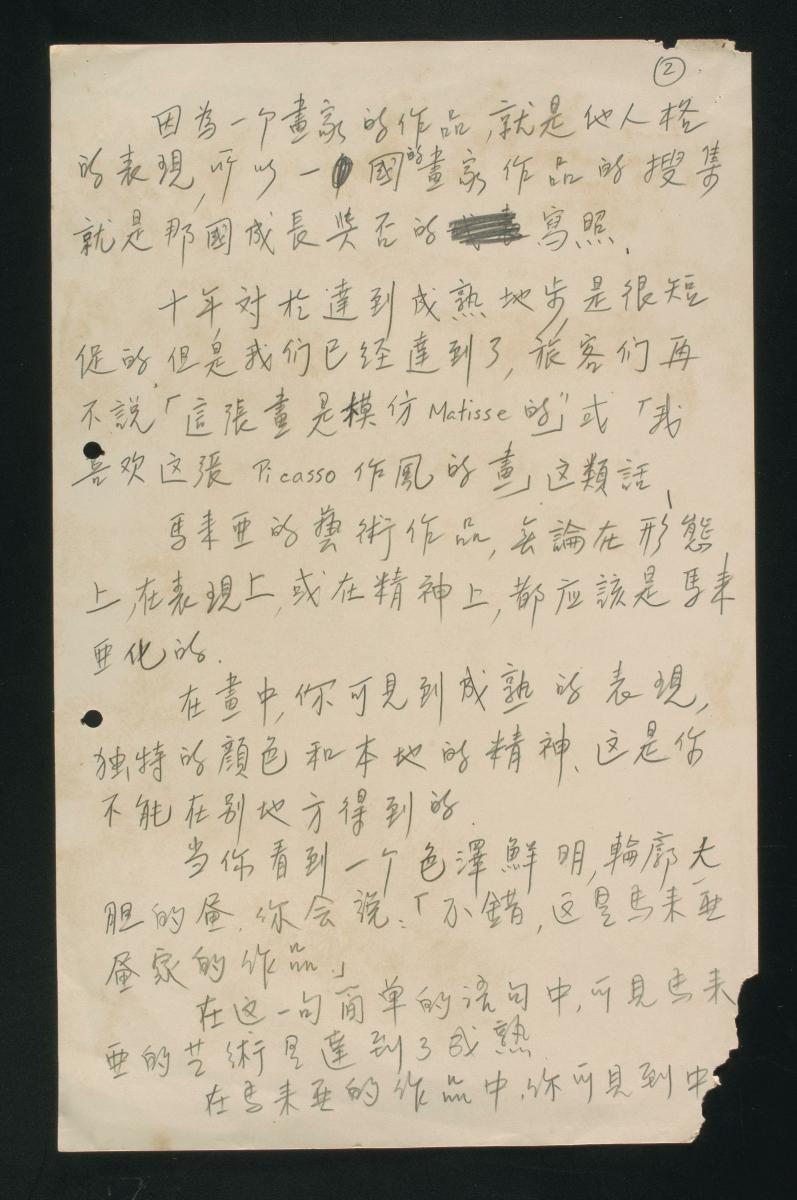 2
因為一个畫家的作品,就是他人格
的表現,所以一國的畫家作品的搜集
就是那國成長與否的寫照.
十年対於達到成熟地步,是很短
促的,但是我们已经達到了,旅客们再
不說「這張畫是模仿Matisse的」或「我
喜欢这張Picasso作風的畫」这類話、
馬来亜的藝術作品,無論在形態
上,在表現上,或在精神上,都应該是馬来
亜化的.
在畫中,你可見到成熟的表現,
独特的顔色和本地的精神、这是你
不能在别地方得到的.
当你看到一个色澤鮮明,輪廓大
胆的畫.你会説:「不錯,这是馬来亜
畫家的作品.」
在这一句简单的语句中,可見馬来
亜的芸術是達到了成熟
在馬来亜的作品中.你可見到中